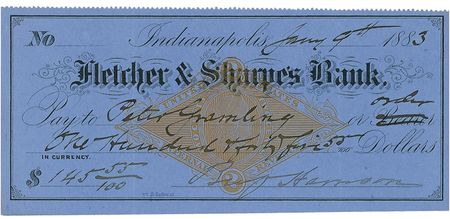 No Indianapolis, Jany 9th 1883
Fletcher & Sharpe's Bank,
Pay to Peter Gramling or order Bearer
One Hundred & forty five 55/100 Dollars
IN CURRENCY.
$ 145 55/100 Benj Harrison
UNITED STATES
2